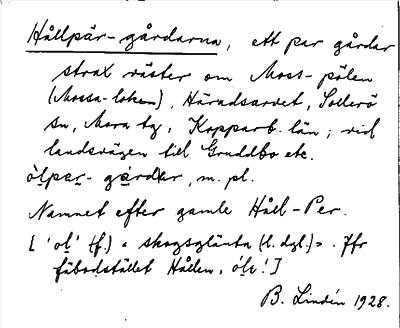 Hållpär-gårdarna, ett par gårdar
strax väster om Moss-pölen
(Mossa-loken), Häradsarvet, Sollerö
sn, Mora tg, Kopparb. län; vid
landsvägen till Gruddbo etc.
m. pl.
Namnet efter gamle Håll-Per.
['ol' (f.) = skogsglänta (l. dyl.) = . Jfr
fäbodstället Hållen, óln!]
B. Lindén 1928.